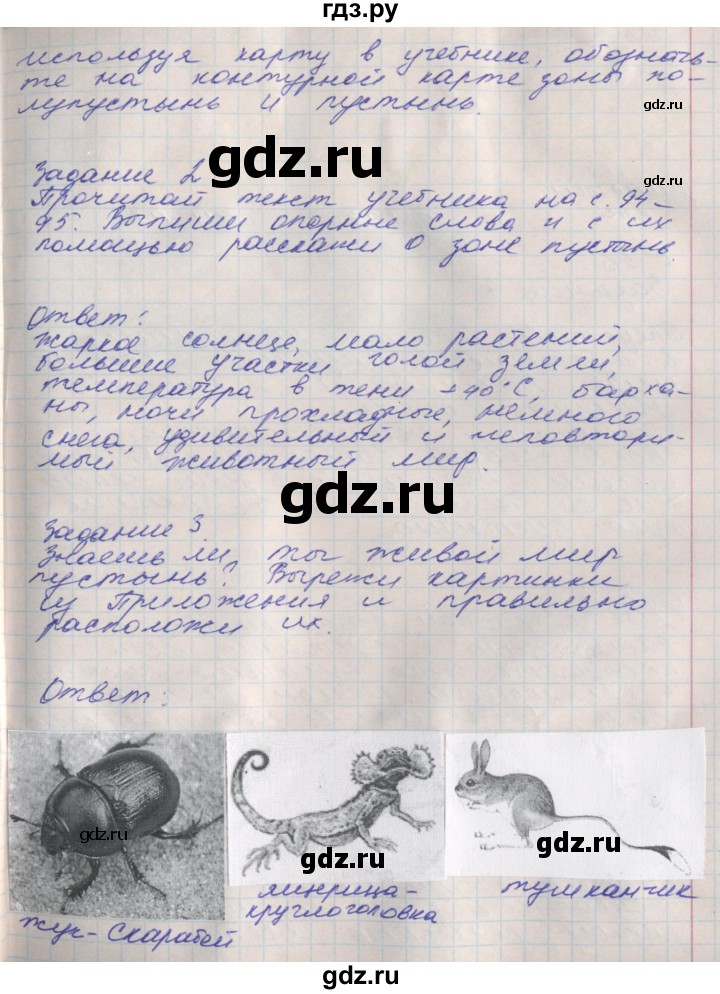 гдз.ру
используя карту в учебнике, обозначь-
те на контурной карте зоны по-
лупустынь и пустынь.
gdz.ru
gdz.ru
Задание 2
gdz.ru
Прочитай текст учебника на с. 94-
95. Выпиши опорные слова и с их
помощью расскажи о зоне пустынь.
gdz.ru
Ответ:
жаркое солнце, мало растений,
большие участки голой земли,
температура в тени +40°С, барха-
ны, ночи прохладные, немного
снега, удивительный и неповтори-
мый животный мир.
gdz.ru
gdz.ru
Задание 3.
Знаешь ли, ты живой мир
пустынь? Вырежи картинки
из Приложения и правильно
расположи их.
gdz.ru
gdz.ru
Ответ:
gdz.ru
gdz.ru
gdz.ru
gdz.ru
жук-скарабей
ящерица-
круглоголовка
тушканчик
gdz.ru
gdz.ru